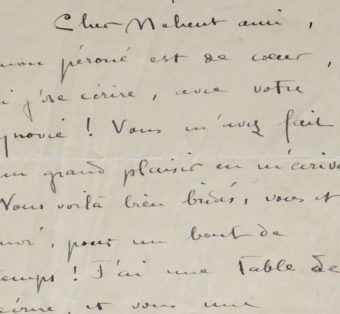 Cher Mehent ami,
mon péroné est de cœur,
si j'ose écrire, avec votre
synovie ! Vous m'avez fait
un grand plaisir en m'écriva
Vous voilà bien bridés, vous et
moi, pour un bout de
temps ! J'ai une Table de
écrire, et vous une